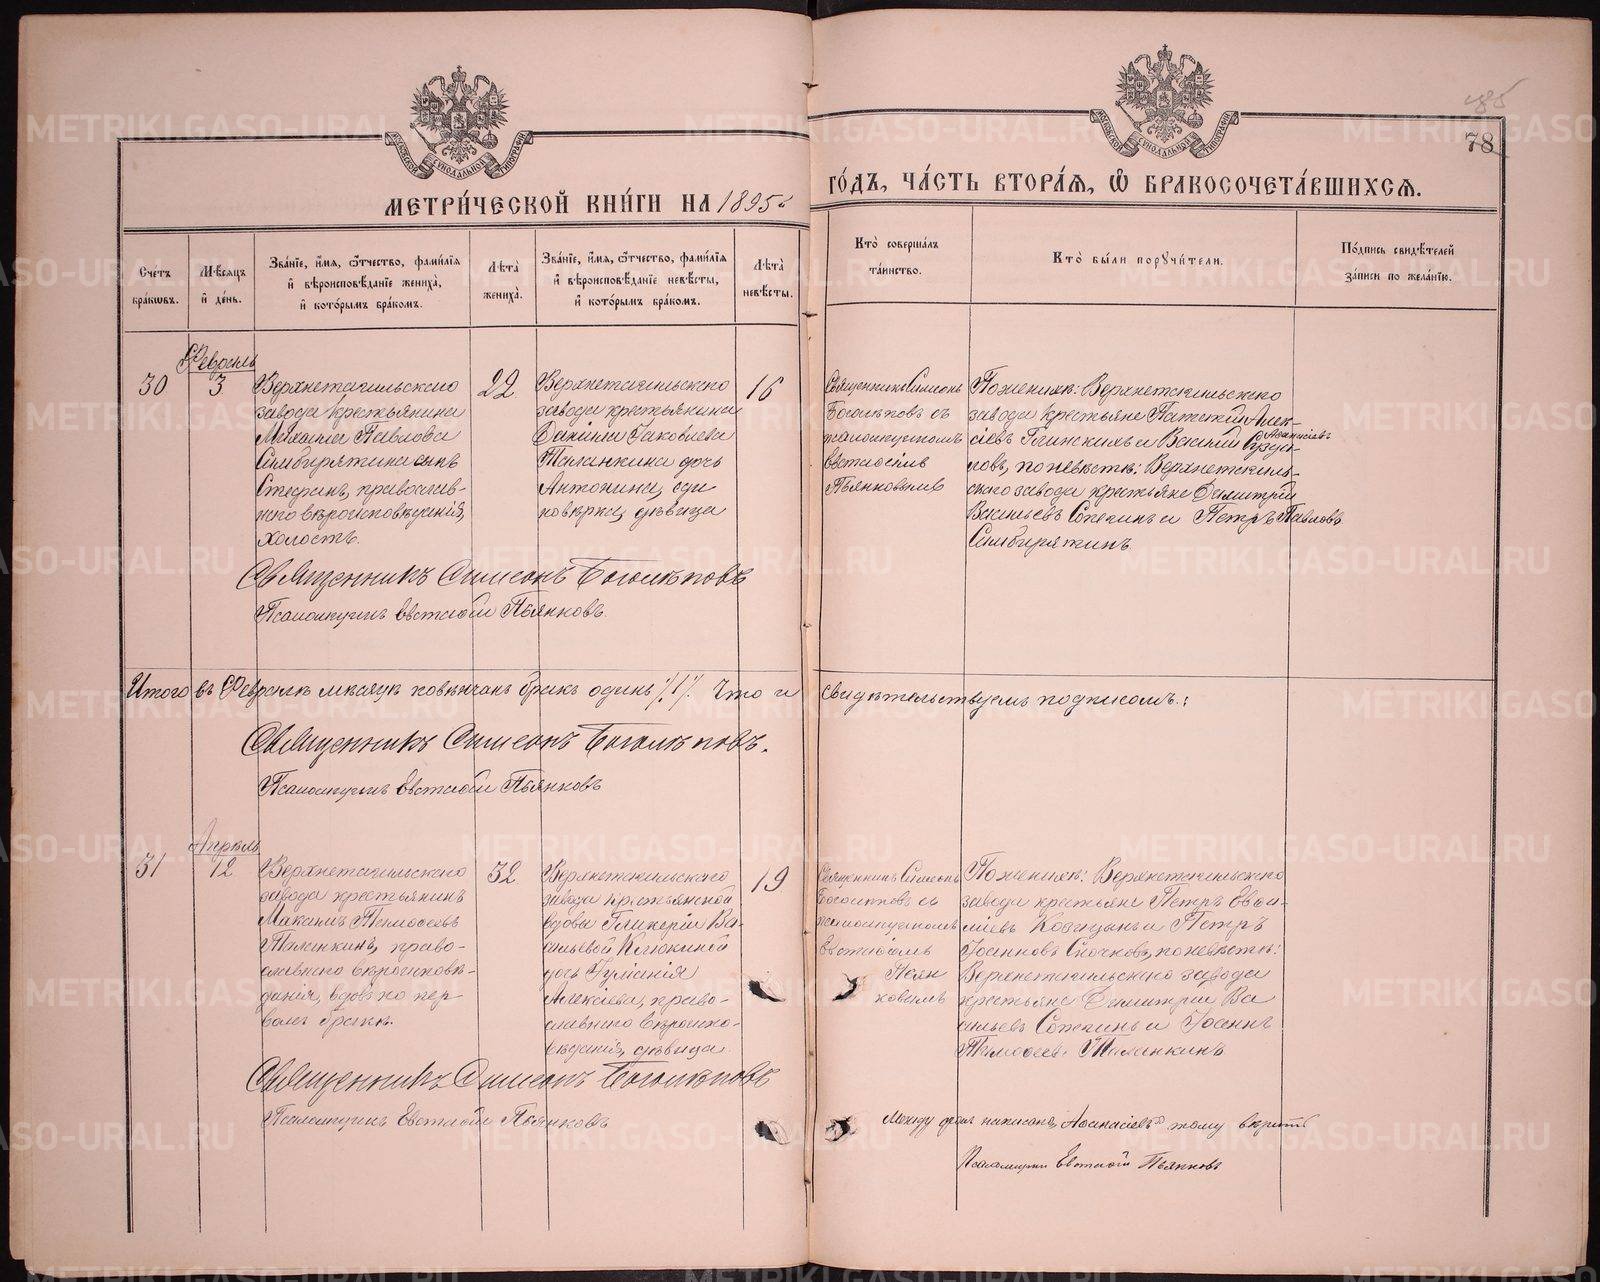 МЕТРИ́ЧЕСКОЙ КНИ́ГИ НА 1895
ГО́ДЪ, ЧА́СТЬ ВТОРА́Я, Ѽ БРАКОСОЧЕТА́ВШИХСЯ.
78
Сче́тъ бра́ковъ.
Мѣ́сяцъ и де́нь.
Зва́нїе, и́мя, ѻ҆́тчество, фами́лїя и вѣроисповѣ́данїе жениха̀, и кото́рымъ бра́комъ.
Лѣ́та жениха̀.
Зва́нїе, и́мя, ѻ҆́тчество, фами́лїя и вѣроисповѣ́данїе невѣ́сты, и кото́рымъ бра́комъ.
Лѣ́та невѣ́сты.
Кто̀ соверша́лъ та́инство.
Кто̀ бы́ли поручи́тели.
По́дпись свидѣ́телей за́писи по жела́нїю.
30
Февраль
3
Верхнетагильскаго
завода крестьянина
Михаила Павлова
Симбирякина сынъ
Стефанъ, православ-
наго вѣроисповѣданія,
холостъ.
22
Верхнетагильскаго
завода крестьянина
Даніила Іаковлева
Таланкина дочь
Антонина, еди
новѣрка, дѣвица
16
Священникъ Симеонъ
Боголѣповъ съ
псаломщикомъ
Евстаѳіемъ
Пьянковымъ
По женихѣ: Верхнетагильскаго
завода крестьяне Алек-
сіевъ Глинскихъ и Василій Аѳанасіевъ
по невѣстѣ: Верхнетагиль-
скаго завода крестьяне Димитрій
Васильевъ и Петръ Павловъ
Симбирякинъ
Священникъ Симеонъ Боголѣповъ
Псаломщикъ Евстаѳій Пьянковъ.
Итого въ Февралѣ мѣсяцѣ повѣнчанъ бракъ одинъ /.1/. Что и свидѣтельствуемъ подписомъ.:
Священникъ Симеонъ Боголѣповъ.
Псаломщикъ Евстаѳій Пьянковъ
31
Апрѣль
12
Верхнетагильскаго
завода крестьянинъ
Максимъ Тимоѳеевъ
Таланкинъ, право-
славнаго вѣроисповѣ-
данія, вдовъ по пер
вомъ бракѣ.
32
Верхнетагильскаго
завода крестьянской
вдовы Гликеріи Ва-
сильевой Клюкиной
дочь Іуліанія
Алексіева, право-
славнаго вѣроиспо-
вѣданія, дѣвица
19
Священникъ Симеонъ
Боголѣповъ съ
псаломщикомъ
Евстаѳіемъ
Пьян
ковымъ
По женихѣ: Верхнетагильскаго
завода крестьяне Петръ
Козицынъ и Петръ
Іоанновъ Скочковъ, по невѣстѣ:
Верхнетагильскаго завода
крестьяне Димитрій Ва
сильевъ и Іоаннъ
Тимоѳеевъ Таланкинъ
Священникъ Симеонъ Боголѣповъ
Псаломщикъ Евстаѳій Пьянковъ
Между строкъ написано „Аѳанасіевъ“ тому вѣрить
Псаломщикъ Евстаѳій Пьянковъ
METRIKI.GASO-URAL.RU